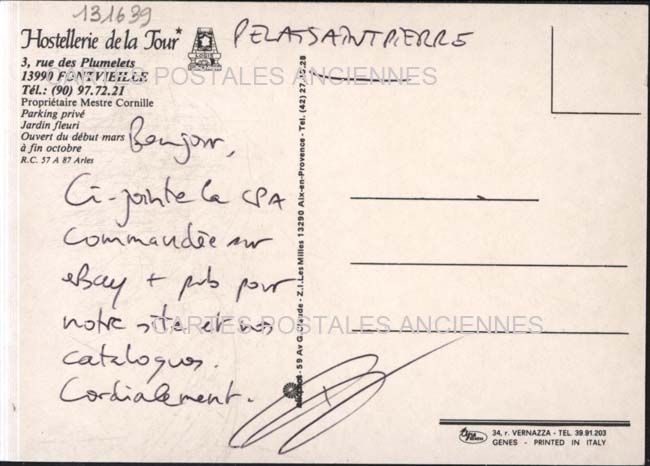 131639
Hostellerie de la Tour*
3, rue des Plumelets
13990 FONTVIEILLE
Tél.: (90) 97.72.21
Propriétaire Mestre Cornille
Parking privé
Jardin fleuri
Ouvert du début mars
à fin octobre
R.C. 57 A 87 Arles
PELASSAINTPIERRE
CARTES POSTALES ANCIENNES
Bonjour,
Ci-jointe la CPA
commandée sur
eBay + pub pour
notre site et nos
catalogues.
Cordialement.
CARTES POSTALES ANCIENNES
59 Av G. Claude - Z.I. Les Milles 13290 Aix-en-Provence - Tel. (42) 27.15.28
34, r. VERNAZZA - TEL. 39.91.203
GENES - PRINTED IN ITALY